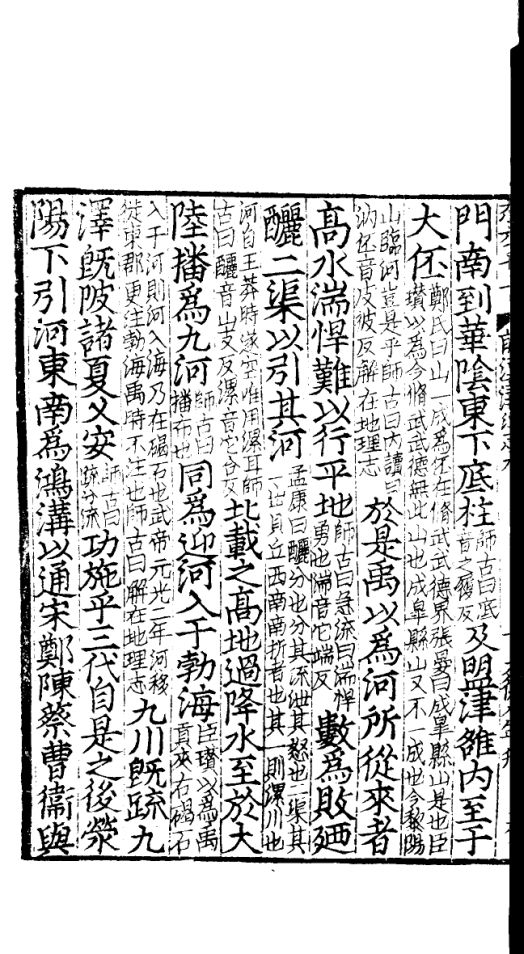 門南到華陰東下底柱師古曰底音之履反及盟津雒内至于
大伾鄭氏曰山一成爲伾在脩武武德界張晏曰成皐縣山是也臣瓉以爲今脩武武德無此山也成皐縣山又不一成也今黎陽
山臨河豈是乎師古曰内讀曰汭伾音皮彼反解在地理志於是禹以爲河所從來者
高水湍悍難以行平地師古曰急流曰湍悍勇也湍音它端反數爲敗廼
釃二渠以引其河孟康曰釃分也分其流泄其怒也二渠其一出貝丘西南南折者也其一則漯川也
河自王莽時遂空唯用漯耳師古曰釃音山支反漯音它合反北載之高地過降水至於大
陸播爲九河師古曰播布也同爲迎河入于勃海臣瓉以爲禹貢夾右碣石
入于河則河入海乃在碣石也武帝元光二年河移徙東郡更注勃海禹時不注也師古曰解在地理志九川旣疏九
澤旣陂諸夏乂安師古曰疏分流功施乎三代自是之後滎
陽下引河東南爲鴻溝以通宋鄭陳蔡曹衞與